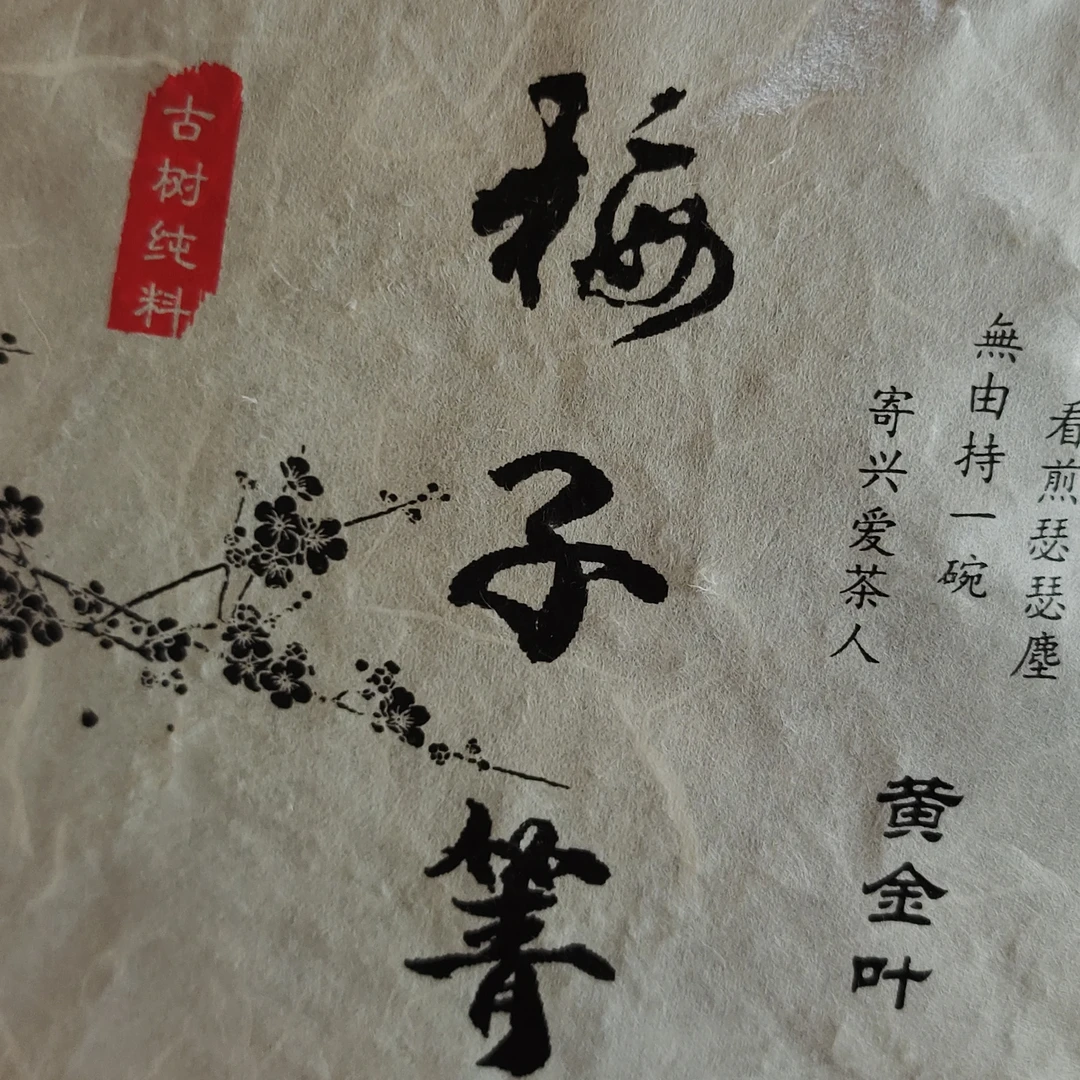 看煎瑟瑟塵
無由持一碗
寄兴爱茶人
黄金叶
梅子箐
古树纯料